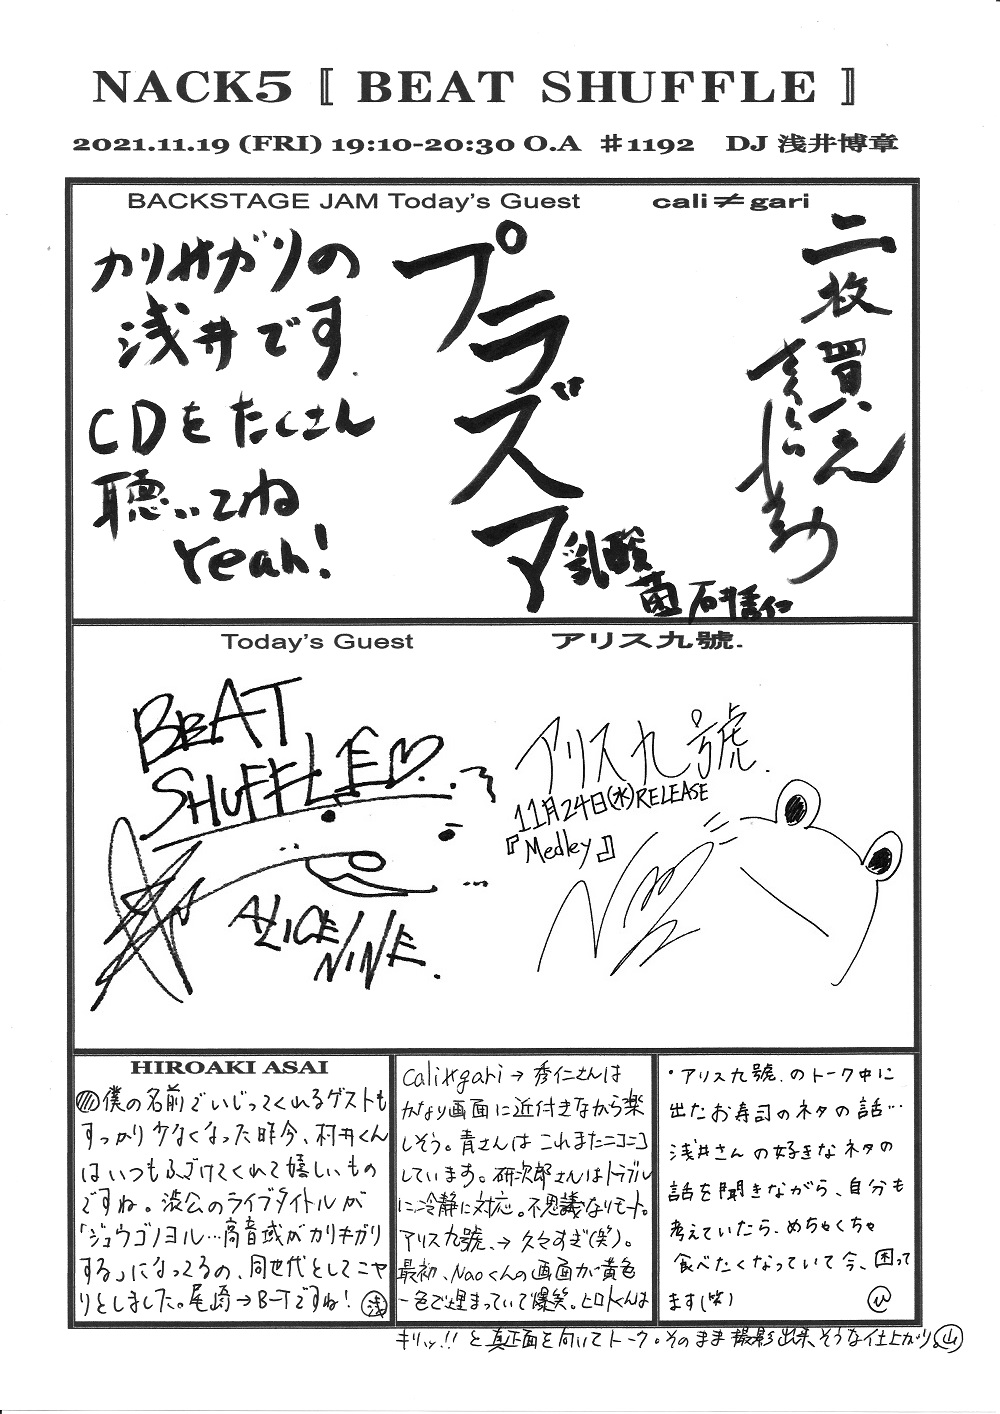 NACK5〚 BEAT SHUFFLE 〛
2021.11.19 (FRI) 19:10-20:30 O.A ♯1192 DJ 浅井博章
BACKSTAGE JAM Today's Guest cali≠gari
カリガリの
浅井です.
CDをたくさん
聴いてね
Yeah!
プラズマ
乳酸
菌 石井秀仁
二枚買え
Today's Guest アリス九號.
BEAT
SHUFFLE
ALICE
NINE.
アリス九號.
11月24日(水)RELEASE
『Medley』
HIROAKI ASAI
僕の名前でいじってくれるゲストも
すっかり少なくなった昨今、村井くん
はいつもふざけてくれて嬉しいもの
ですね。渋公のライブタイトルが
「ジュウゴノヨル…高音域がカリキガリ
する」になってるの、同世代としてニヤ
リとしました。尾崎→B-Tですね! 浅
cali≠gari→秀仁さんは
かなり画面に近付きながら楽
しそう。青さんはこれまたニコニコ
しています。研次郎さんはトラブル
に冷静に対応。不思議なリモート。
アリス九號.→久々すぎ(笑)。
最初、Naoくんの画面が黄色
一色で埋まっていて爆笑。ヒロトくんは
キリッ!!と真正面を向いてトーク。そのまま撮影出来そうな仕上がり。山
・アリス九號.のトーク中に
出たお寿司のネタの話…
浅井さんの好きなネタの
話を聞きながら、自分も
考えていたら、めちゃくちゃ
食べたくなっていて今、困って
ます(笑) ひ